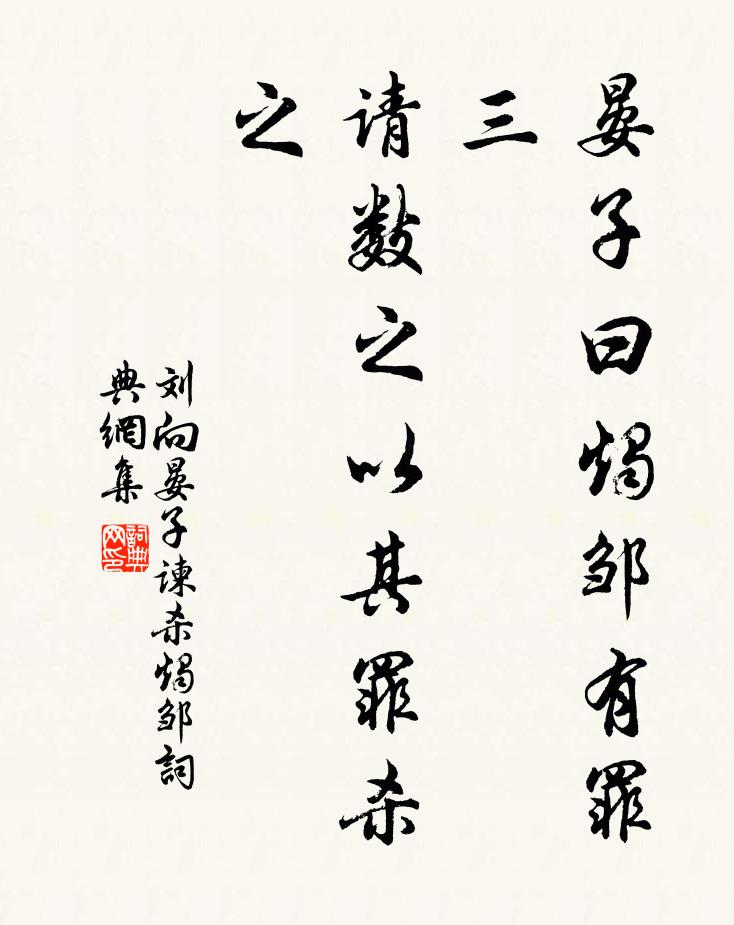 晏子曰烛邹有罪
三
请数之以其罪杀
之
刘向晏子谏杀烛邹詞
典網集
詞典
网印